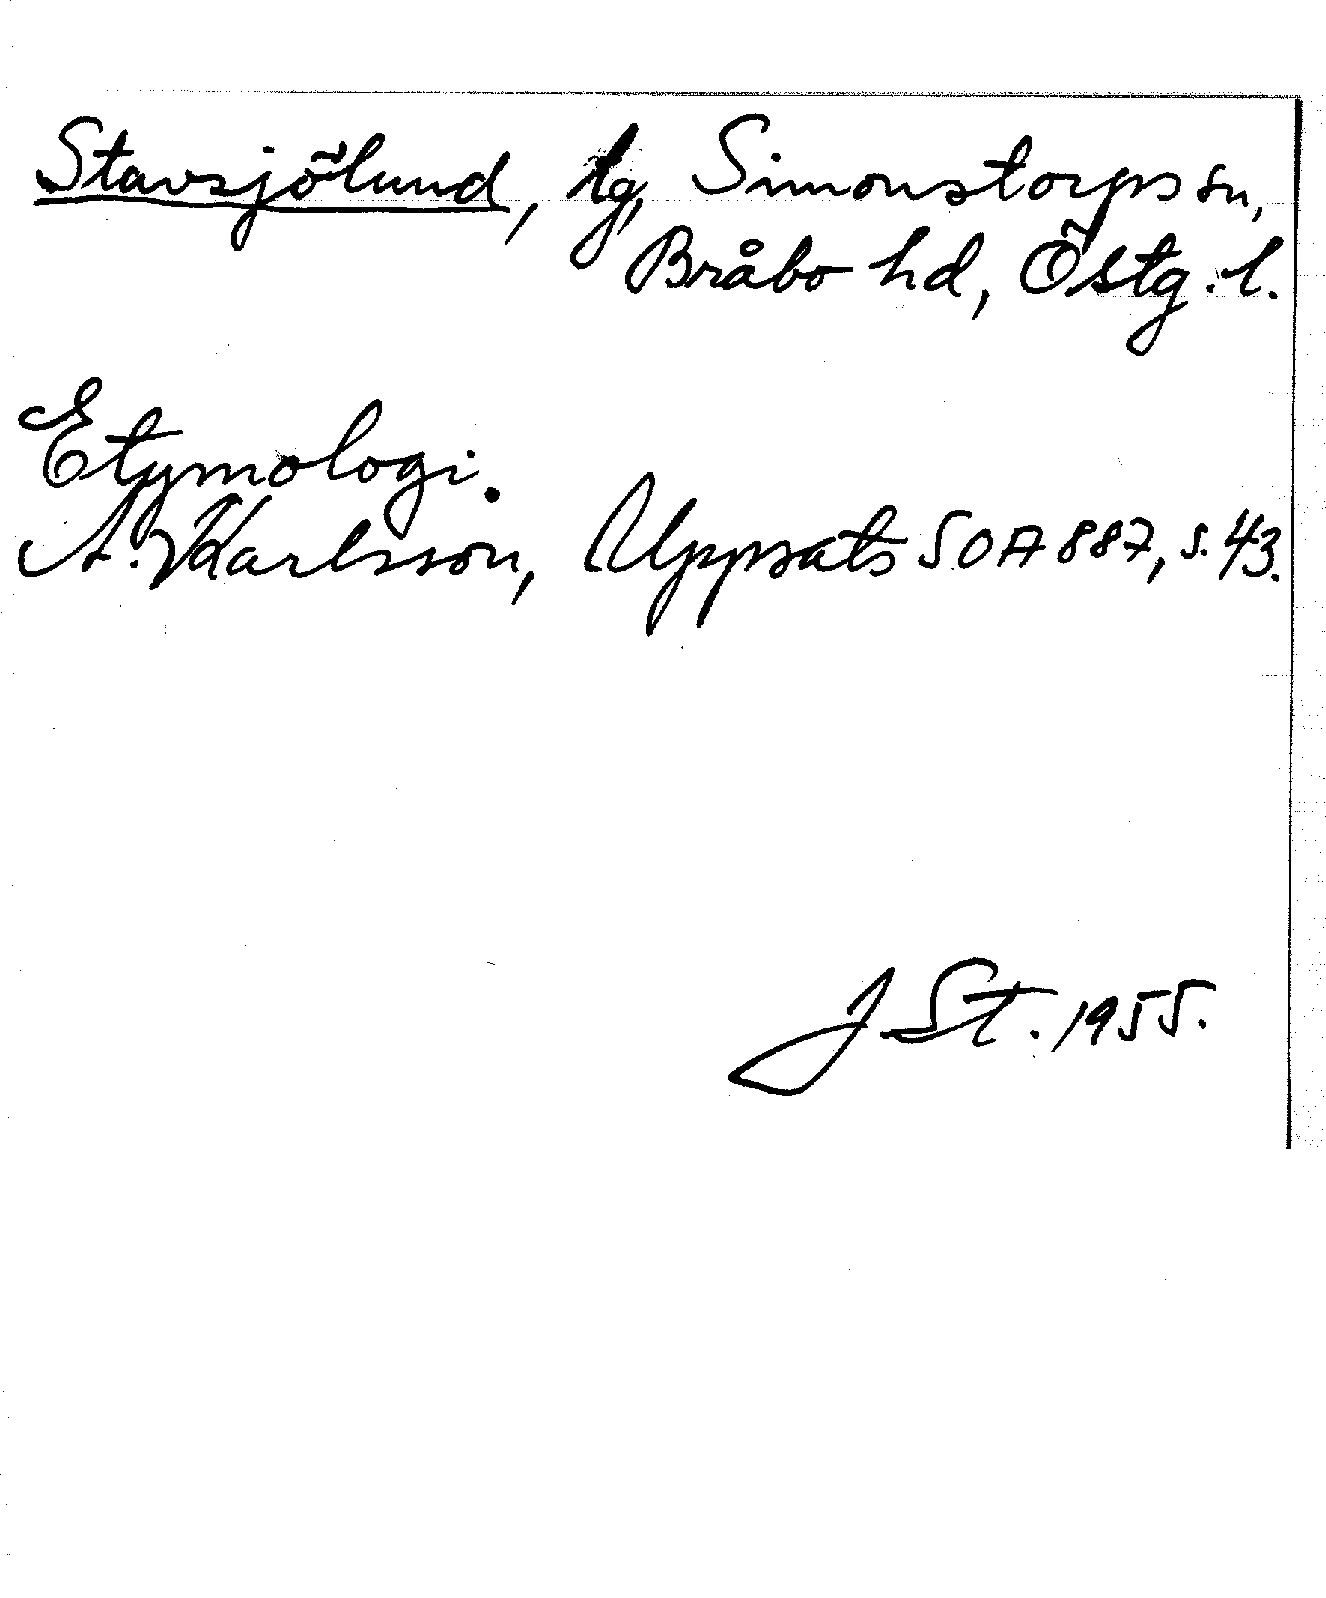 Stavsjölund, lg, Simonstorps sn,
Bråbo hd, Östg. l.
Etymologi.
A. Karlsson, Uppsats SOA 887, s. 43.
J St. 1955.